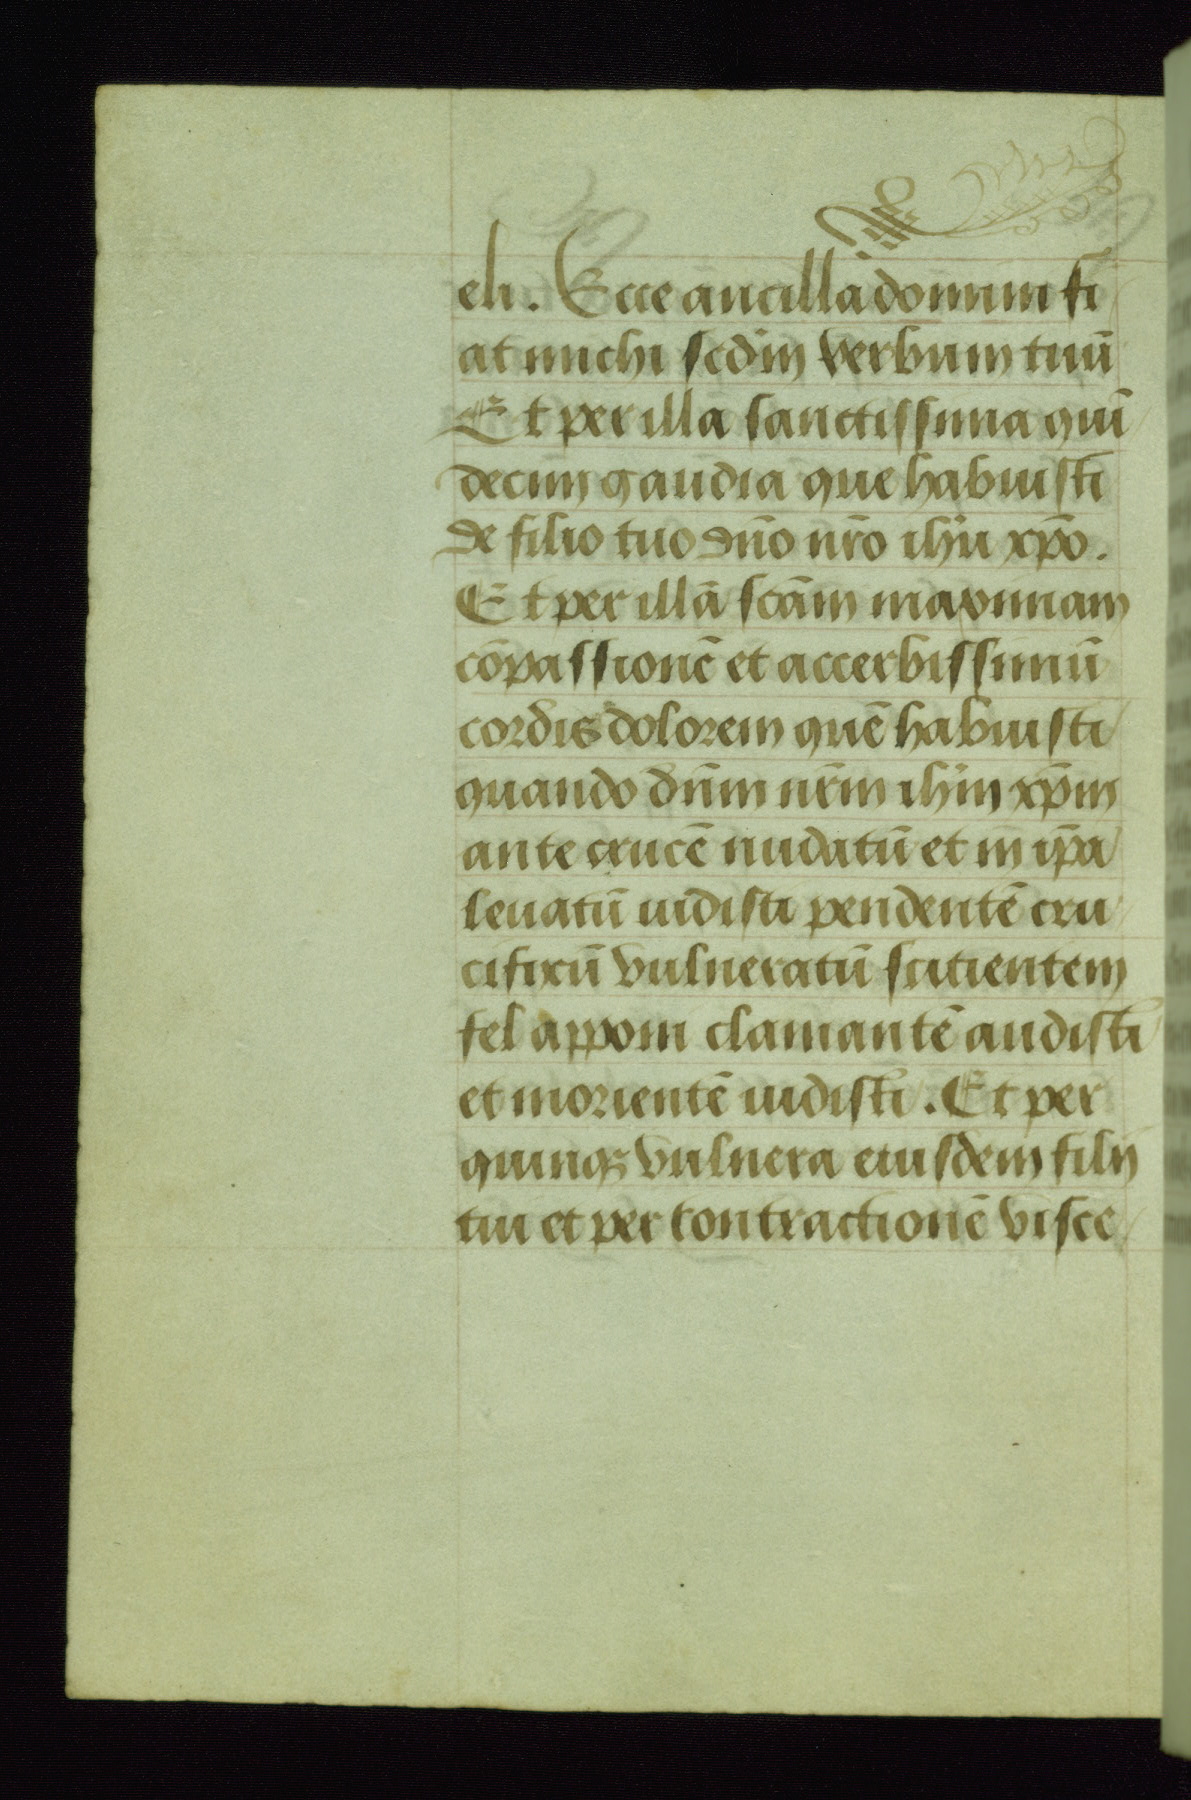 eli. Ecce ancilla domini fi
at michi scdm verbum tuū
Et per illa sanctissima qui
decim gaudia que habuisti
de filio tuo dño nr̄o ihū xp̄o.
Et per illā scām maximam
cōpassionē et accerbissimū
cordis dolorem quē habuisti
quando dn̄m nr̄m ihm̄ xp̄m
ante crucē nudatū et in ip̄a
leuatū uidisti pendentē cru
cifixū vulneratū scitientem
fel apponi clamantē audisti
et morientē uidisti. Et per
quinqꝫ vulnera eiusdem filij
tui et per contractionē visce